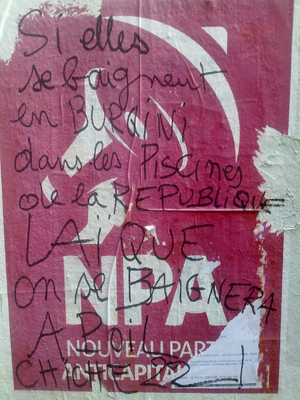 Si elles
se baignent
en BURQINI
dans les PISCINES
de la REPUBLIQUE
LAÏQUE
on se BAIGNERA
A POIL
CHICHE
NPA
NOUVEAU PART
ANTICAPITAL